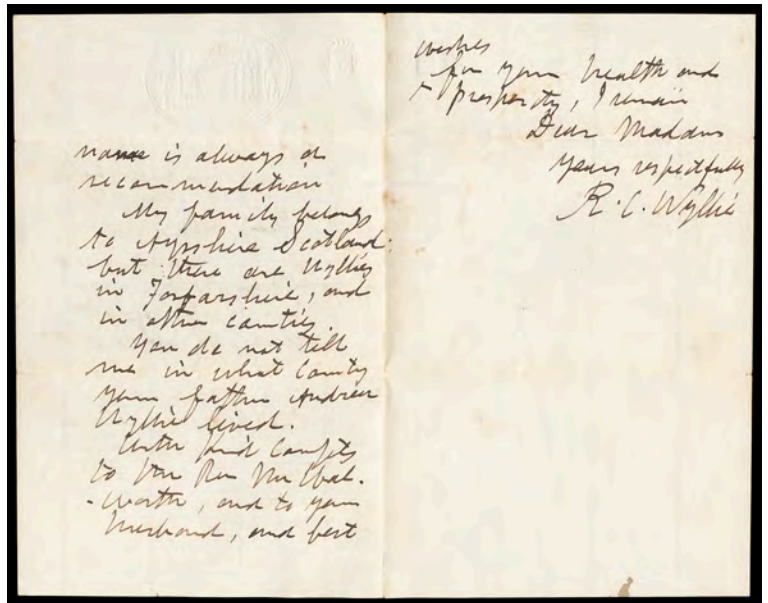 name is always a
recommendation
My family belongs
to Ayrshire Scotland:
but there are Wyllies
in Forfarshire, and
in other counties.
You do not tell
me in what County
your father Andrew
Wyllie lived.
With kind Complts
to the Rev Mr Wal-
-worth, and to your
husband, and best
wishes
for your health and
prosperity, I remain
Dear Madam
Yours respectfully
R. C. Wyllie